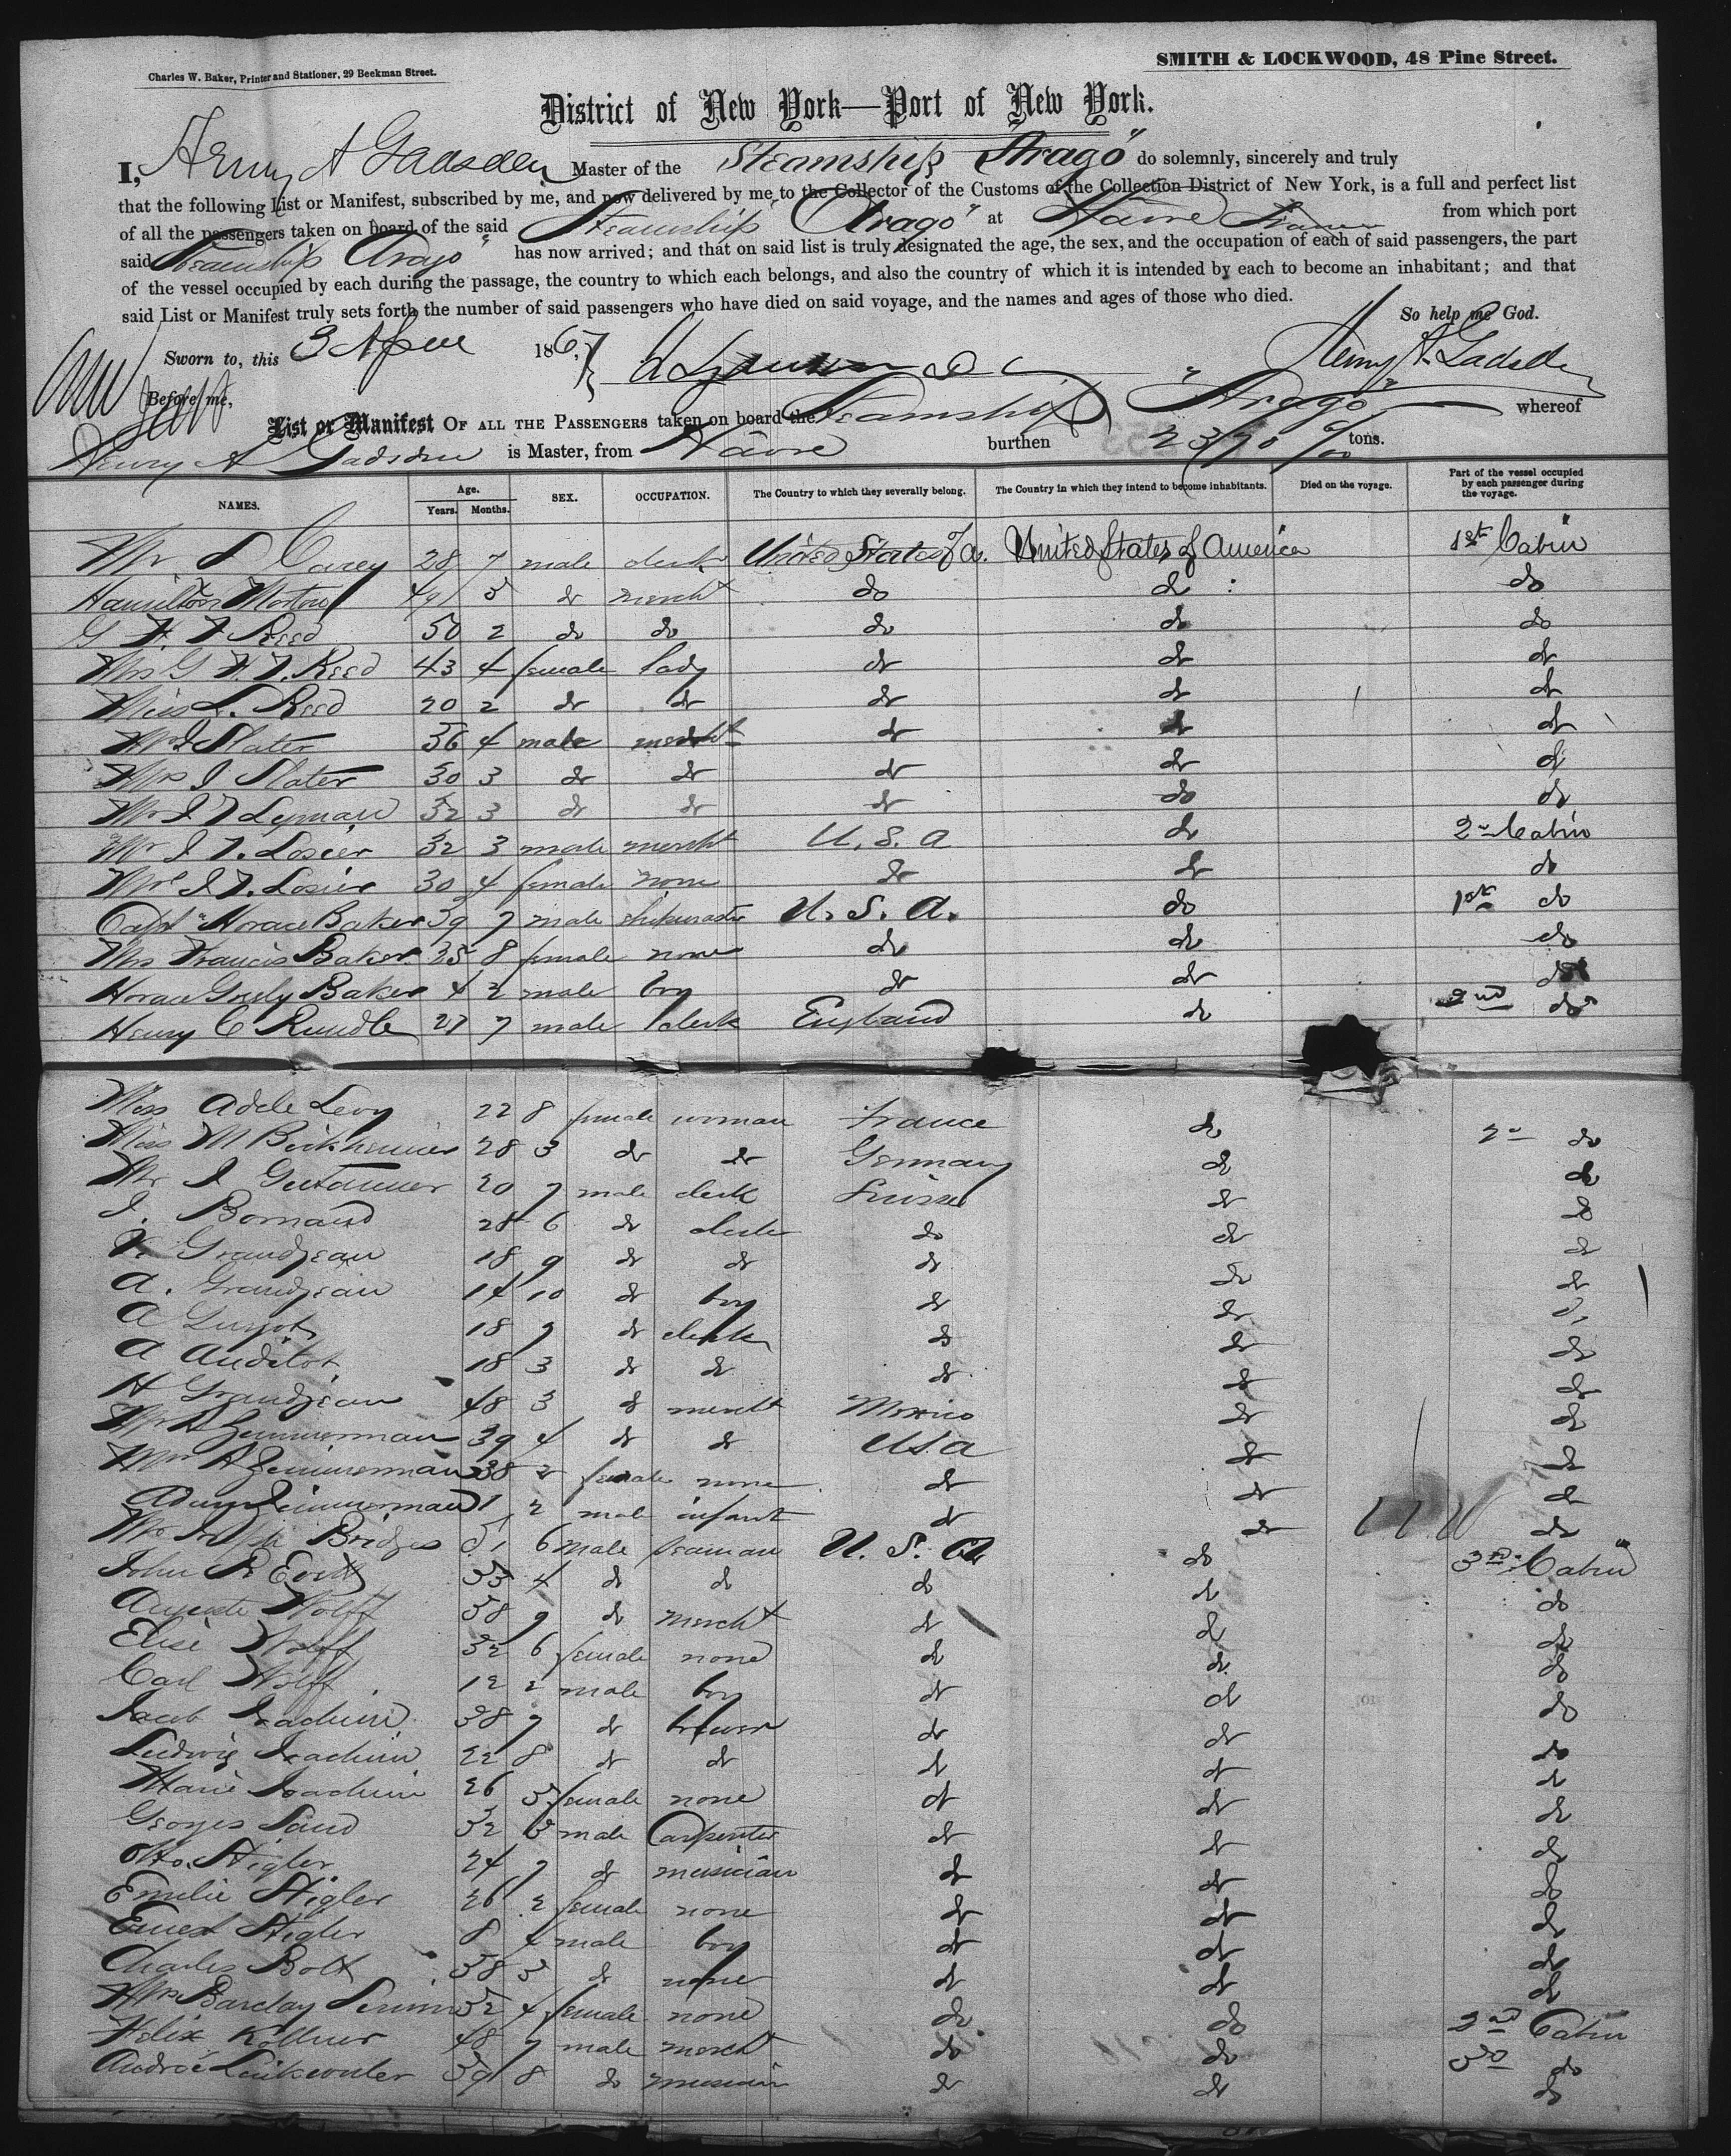 Charles W. Baker, Printer and Stationer, 29 Beekman Street.
SMITH & LOCKWOOD, 48 Pine Street.
District of New York—Port of New York.
I, Henry A Gadsden Master of the Steamship "Arago" do solemnly, sincerely and truly
that the following List or Manifest, subscribed by me, and now delivered by me to the Collector of the Customs of the Collection District of New York, is a full and perfect list
of all the passengers taken on board of the said Steamship "Arago" at Havre France from which port
said Steamship Arago" has now arrived; and that on said list is truly designated the age, the sex, and the occupation of each of said passengers, the part
of the vessel occupied by each during the passage, the country to which each belongs, and also the country of which it is intended by each to become an inhabitant; and that
said List or Manifest truly sets forth the number of said passengers who have died on said voyage, and the names and ages of those who died. So help me God.
Sworn to, this 3 April 1867 Henry A. Gadsden
Before me,
List or Manifest OF ALL THE PASSENGERS taken on board the Steamship "Arago" whereof
Henry A Gadsden is Master, from Havre burthen tons.
NAMES. Age. Years. Months. SEX. OCCUPATION. The Country to which they severally belong. The Country in which they intend to become inhabitants. Died on the voyage. Part of the vessel occupied by each passenger during the voyage.
Mr S Carey 28 7 male clerk United States of A. United States of America 1st Cabin
Hamilton Morton 49 5 do mercht do do do
G. W. T. Reed 50 2 do do do do do
Mrs G W. T. Reed 43 4 female lady do do do
Miss L. Reed 20 2 do do do do do
Mr J Slater 36 4 male mercht do do do
Mrs J Slater 30 3 do do do do do
Mr J T Lyman 32 3 do do do do do
Mr J T. Losier 32 3 male mercht U. S. A do 2d Cabin
Mrs J T. Losier 30 4 female none do do do
Captn Horace Baker 39 7 male shipmaster U. S. A. do 1st do
Mrs Francis Baker 35 8 female none do do do
Horace Grely Baker 4 2 male boy do do do
Henry C Rundle 27 7 male clerk England do 2nd do
Miss Adele Levy 22 8 female woman France do 2d do
Miss M 28 3 do do Germany do do
Mr J 20 7 male clerk Suisse do do
J. Bornand 28 6 do clerk do do do
Grandjean 18 9 do do do do do
A. Grandjean 14 10 do boy do do do
A 18 9 do clerk do do do
A Audetat 18 3 do do do do do
H Grandjean 48 3 do mercht Mexico do do
Mr A Zimmerman 39 4 do do USA do do
Mrs A Zimmerman 38 2 female none do do do
Adam Zimmerman 1 2 male infant do do do
Mr Bridges 6 male seaman U. S. A do 3rd Cabin
John R 33 4 do do do do do
Auguste Wolff 38 9 do mercht do do do
Elise Wolff 32 6 female none do do do
Carl Wolff 12 2 male boy do do do
Jacob Joachim 38 7 do brewer do do do
Ludwig Joachim 22 8 do do do do do
Marie Joachim 26 3 female none do do do
Georges Sand 32 3 male Carpenter do do do
Otto Stigler 24 7 do musician do do do
Emilie Stigler 26 2 female none do do do
Ernest Stigler 8 4 male boy do do do
Charles Bolt 38 3 do none do do do
Mrs Barclay 32 4 female none do do 2nd Cabin
Felix Kollner 48 7 male mercht do do 3rd do
André 39 8 do musician do do do